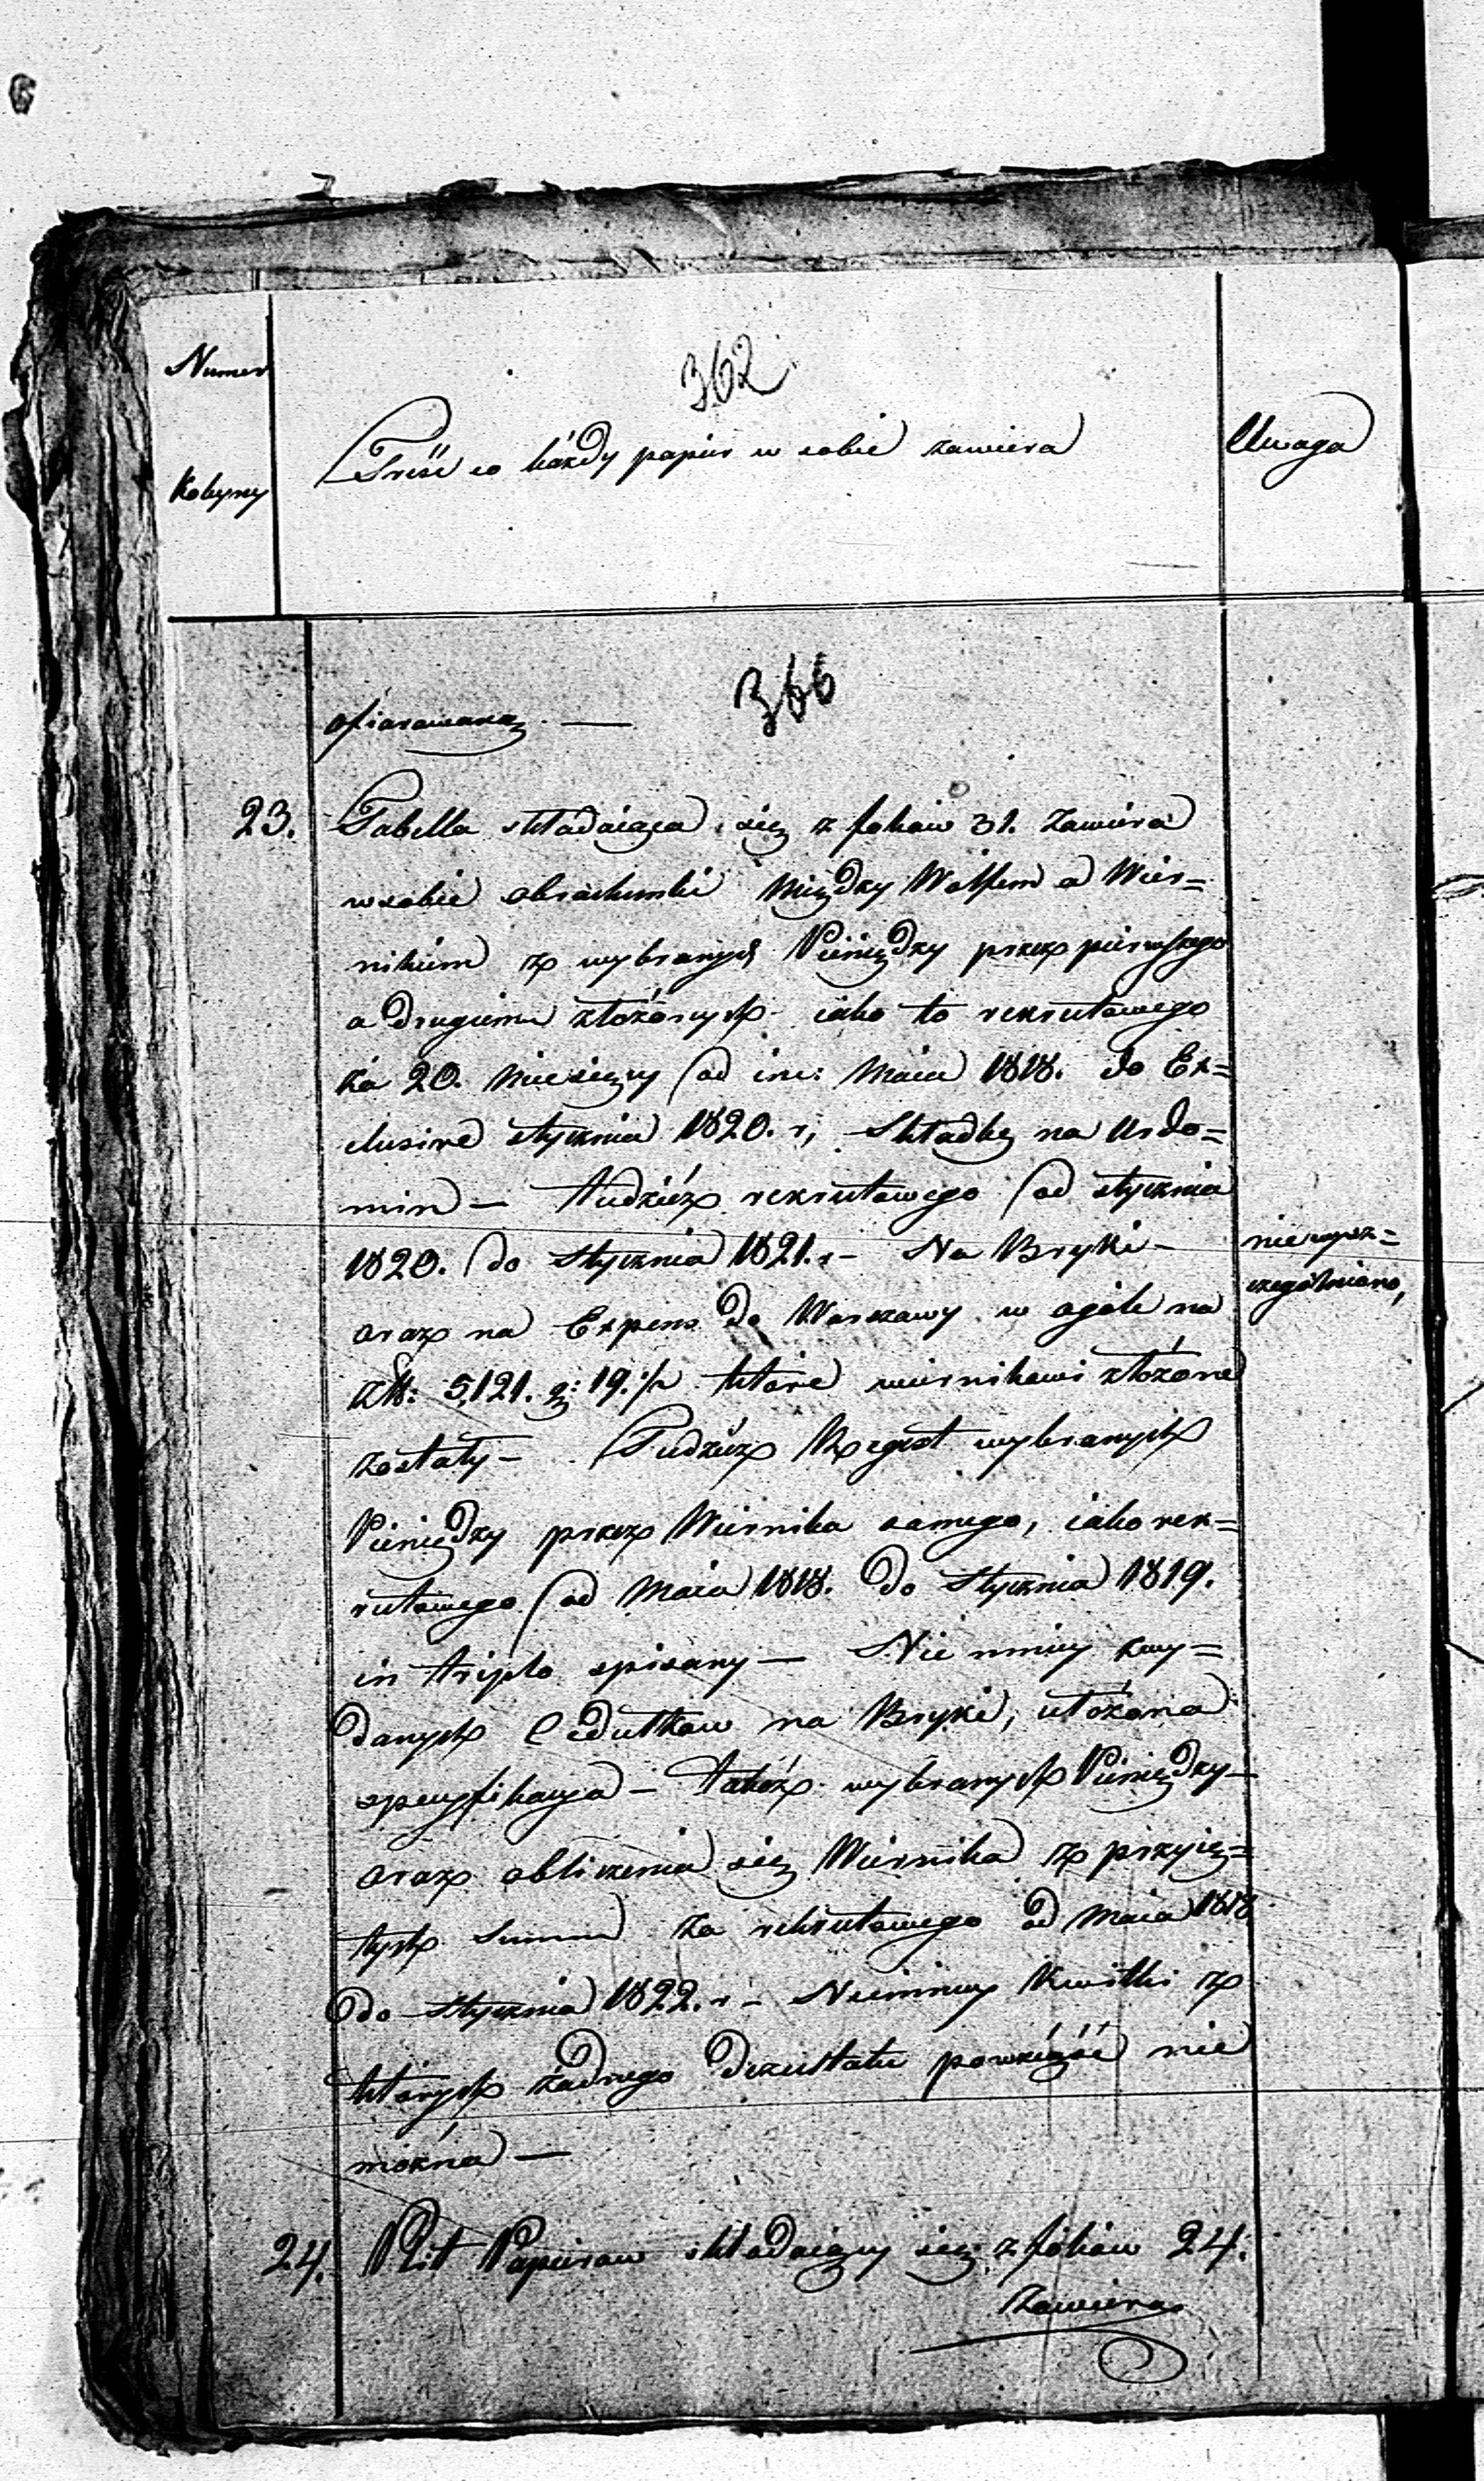 362
Numer
Kolejny
Treść co każdy papier w sobie zawiera
Uwaga
366
ofiarowaną. —
23. Tabella składaiąca się z foliow 31. Zawiera
w sobie obrachunki między Wolfem a Wier=
nikiem z wybranych Pieniędzy przez pierwszego
a drugiemu złożonych iako to rekrutowego
za 20. Miesięcy od inc: Maia 1818. do Ex=
clusive stycznia 1820. r, Składkę na
— tudzież rekrutowego od stycznia
1820. do Stycznia 1821. r — Na Bryki —
nie wysz=
czególniono,
oraz na Expens do Warszawy w ogóle na
złt: 5,121. g: 19. które wiernikowi złożone
zostały — Tudzież Regest wybranych
Pieniędzy przez Wiernika samego, iako rek=
rutowego od Maia 1818. do Stycznia 1819.
in triplo spisany — Nie mniey zwy=
danych Cedułkow na Bryki, ułożona
specyfikacya — takoż wybranych Pieniędzy —
oraz obliczenia się Wiernika z przyię=
tych Summ za rekrutowego od Maia 1818
do Stycznia 1822. r — Niemniey Kwitki z
których żadnego Rezultatu powziąść nie
można —
24. Plit Papierow składaiący się z foliow 24.
Zawiera